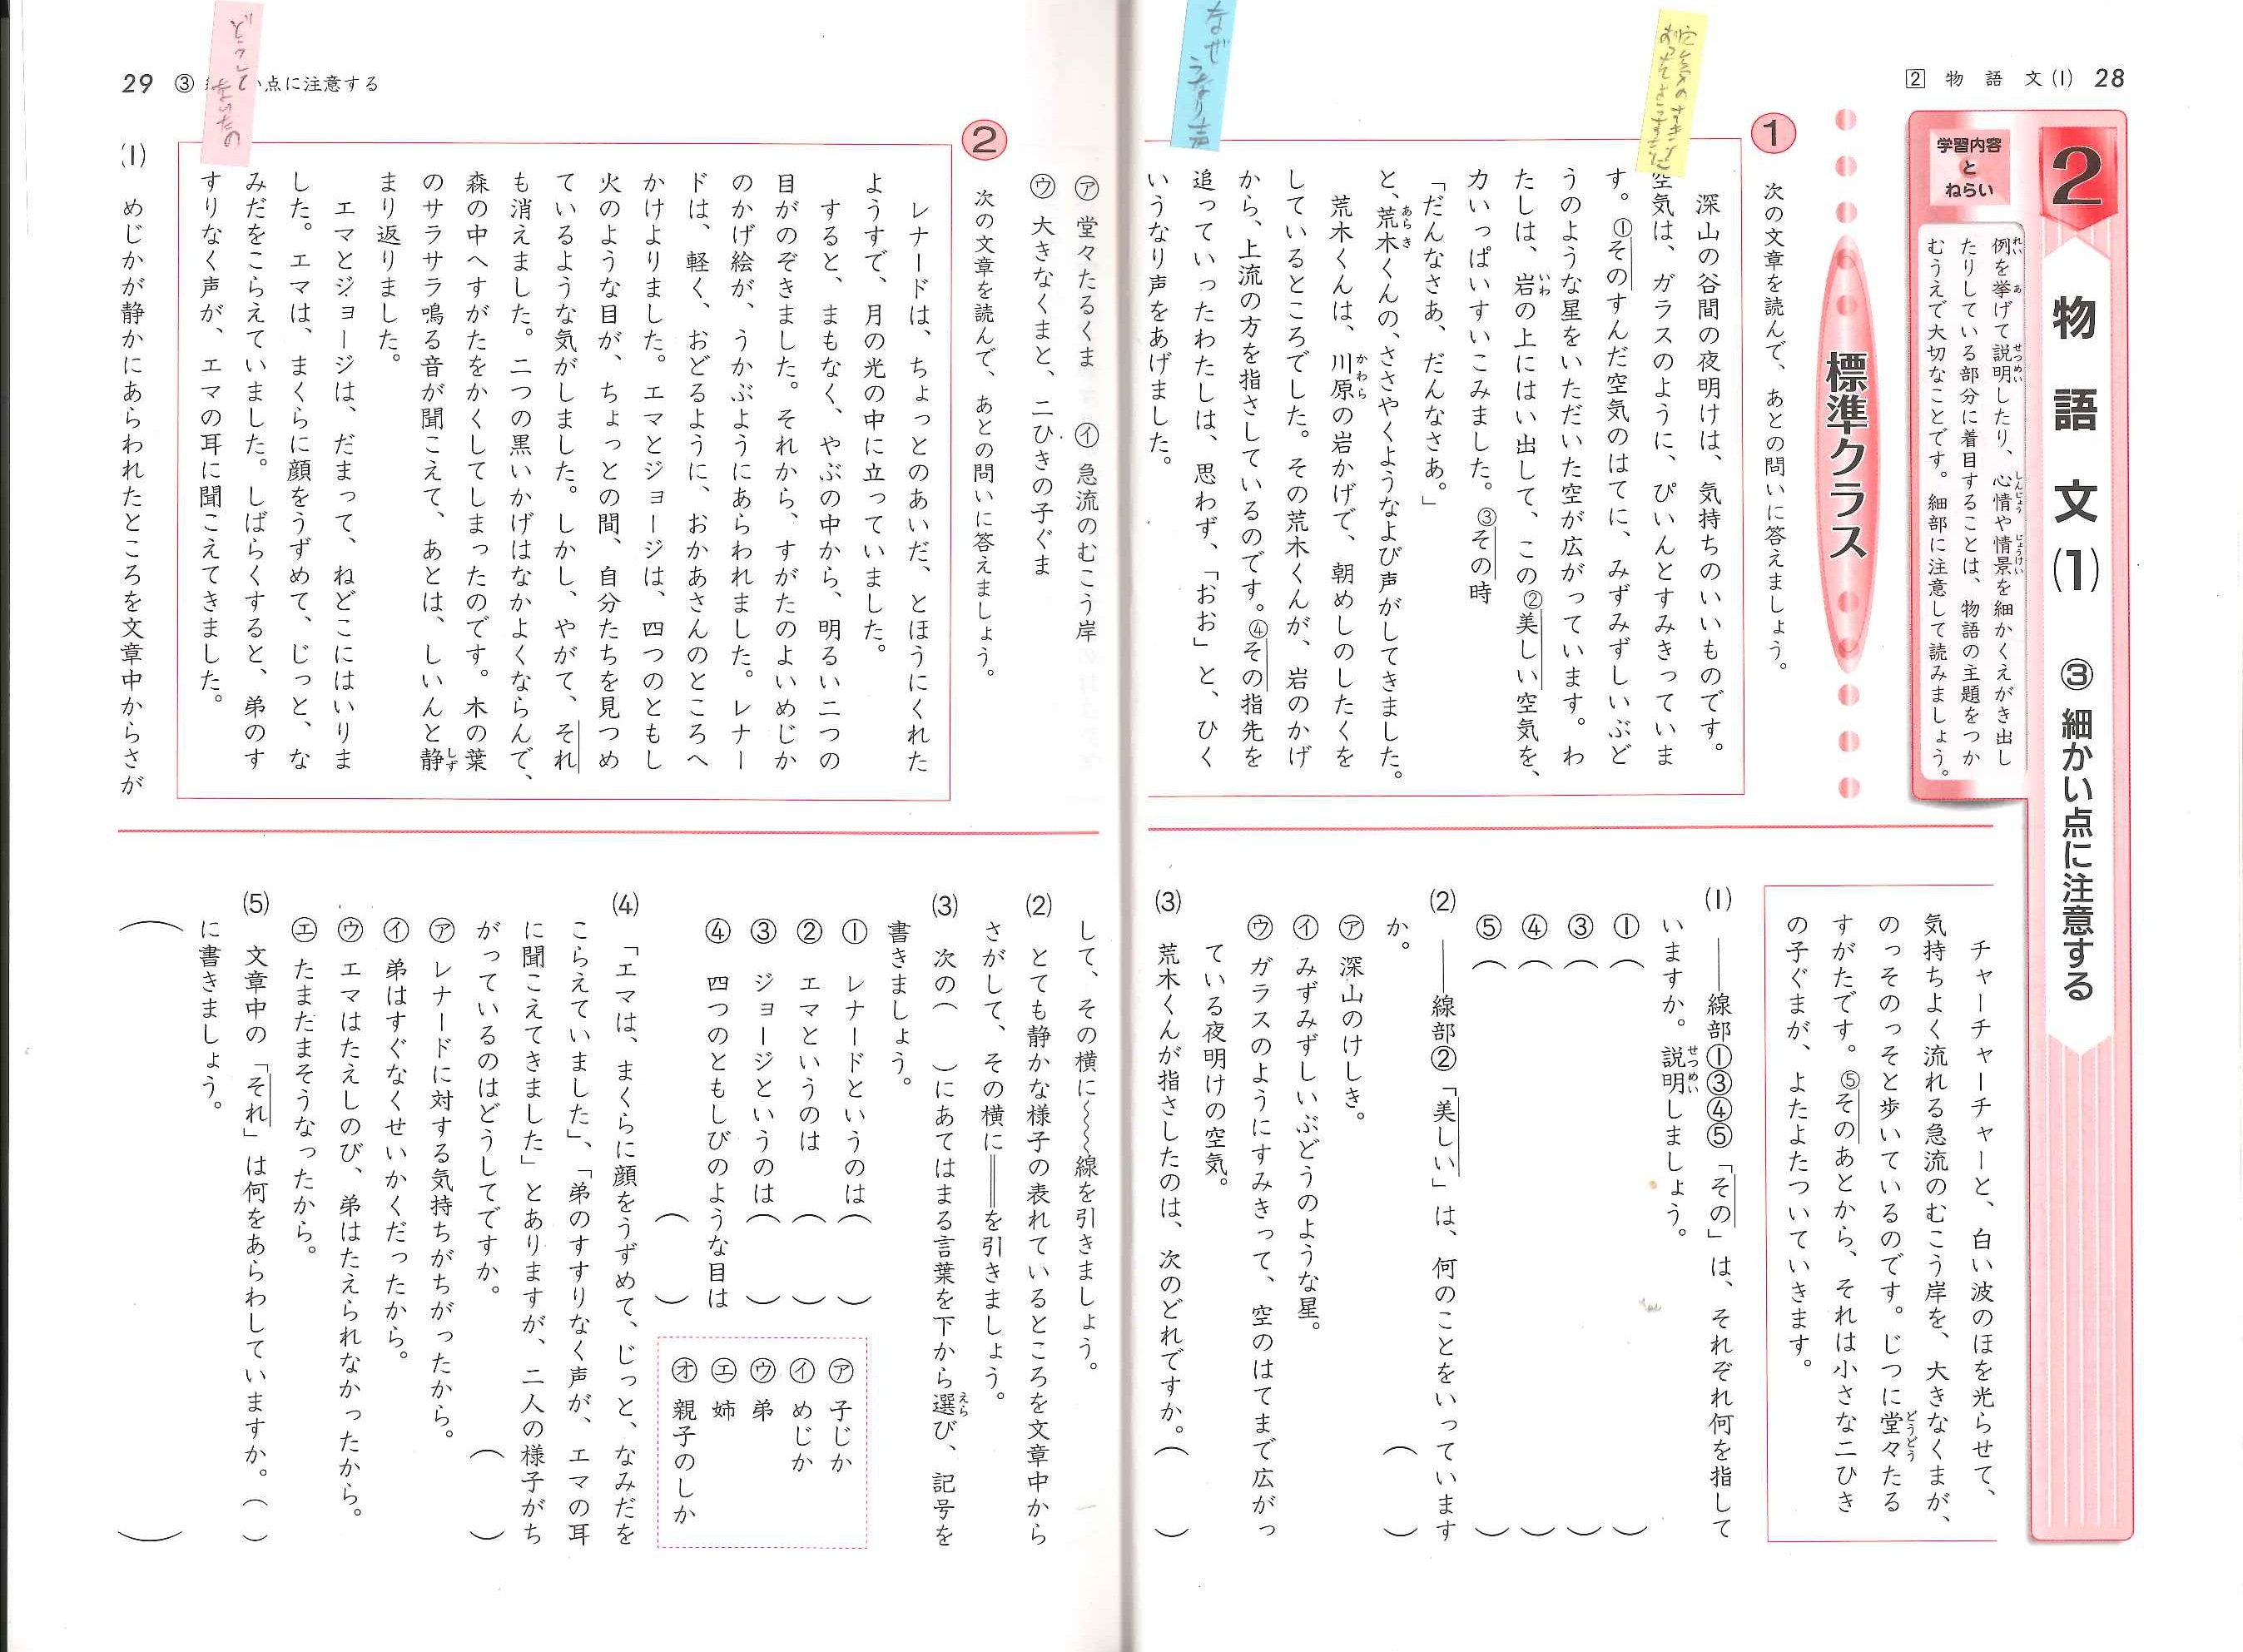 2 物語文(1) 28
2 物語文(1) ③細かい点に注意する
学習内容
と
ねらい
例を挙げて説明したり、心情や情景を細かくえがき出し
たりしている部分に着目することは、物語の主題をつか
むうえで大切なことです。細部に注意して読みましょう。
標準クラス
1 次の文章を読んで、あとの問いに答えましょう。
深山の谷間の夜明けは、気持ちのいいものです。
空気は、ガラスのように、ぴいんとすみきっていま
す。①そのすんだ空気のはてに、みずみずしいぶど
うのような星をいただいた空が広がっています。わ
たしは、岩の上にはい出して、この②美しい空気を、
力いっぱいすいこみました。③その時
「だんなさあ、だんなさあ。」
と、荒木くんの、ささやくようなよび声がしてきました。
荒木くんは、川原の岩かげで、朝めしのしたくを
しているところでした。その荒木くんが、岩のかげ
から、上流の方を指さしているのです。④その指先を
追っていったわたしは、思わず、「おお」と、ひく
いうなり声をあげました。
チャーチャーチャーと、白い波のほを光らせて、
気持ちよく流れる急流のむこう岸を、大きなくまが、
のっそのっそと歩いているのです。じつに堂々たる
すがたです。⑤そのあとから、それは小さな二ひき
の子ぐまが、よたよたついていきます。
(1) ――線部①③④⑤「その」は、それぞれ何を指して
いますか。説明しましょう。
①( )
③( )
④( )
⑤( )
(2) ――線部②「美しい」は、何のことをいっています
か。( )
㋐ 深山のけしき。
㋑ みずみずしいぶどうのような星。
㋒ ガラスのようにすみきって、空のはてまで広がっ
ている夜明けの空気。
(3) 荒木くんが指さしたのは、次のどれですか。( )
なぜ
うなり声
29 ③ い点に注意する
㋐ 堂々たるくま ㋑ 急流のむこう岸
㋒ 大きなくまと、二ひきの子ぐま
2 次の文章を読んで、あとの問いに答えましょう。
レナードは、ちょっとのあいだ、とほうにくれた
ようすで、月の光の中に立っていました。
すると、まもなく、やぶの中から、明るい二つの
目がのぞきました。それから、すがたのよいめじか
のかげ絵が、うかぶようにあらわれました。レナー
ドは、軽く、おどるように、おかあさんのところへ
かけよりました。エマとジョージは、四つのともし
火のような目が、ちょっとの間、自分たちを見つめ
ているような気がしました。しかし、やがて、それ
も消えました。二つの黒いかげはなかよくならんで、
森の中へすがたをかくしてしまったのです。木の葉
のサラサラ鳴る音が聞こえて、あとは、しいんと静
まり返りました。
エマとジョージは、だまって、ねどこにはいりま
した。エマは、まくらに顔をうずめて、じっと、な
みだをこらえていました。しばらくすると、弟のす
すりなく声が、エマの耳に聞こえてきました。
(1) めじかが静かにあらわれたところを文章中からさが
して、その横に〜〜〜線を引きましょう。
(2) とても静かな様子の表れているところを文章中から
さがして、その横に══を引きましょう。
(3) 次の( )にあてはまる言葉を下から選び、記号を
書きましょう。
① レナードというのは( )
② エマというのは( )
③ ジョージというのは( )
④ 四つのともしびのような目は( )
㋐ 子じか
㋑ めじか
㋒ 弟
㋓ 姉
㋔ 親子のしか
(4) 「エマは、まくらに顔をうずめて、じっと、なみだを
こらえていました」、「弟のすすりなく声が、エマの耳
に聞こえてきました」とありますが、二人の様子がち
がっているのはどうしてですか。( )
㋐ レナードに対する気持ちがちがったから。
㋑ 弟はすぐなくせいかくだったから。
㋒ エマはたえしのび、弟はたえられなかったから。
㋓ たまたまそうなったから。
(5) 文章中の「それ」は何をあらわしていますか。( )
に書きましょう。
( )